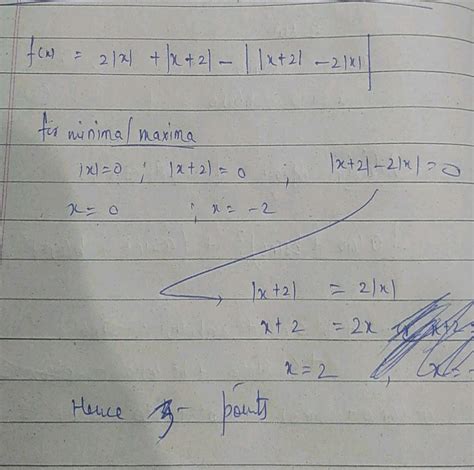 f(x) = 2|x| + |x+2| - ||x+2| - 2|x||
for minima/maxima
|x|=0 ; |x+2|=0 ; |x+2|-2|x|=0
x=0 ; x=-2
|x+2| = 2|x|
x+2 = 2x
x=2
Hence points